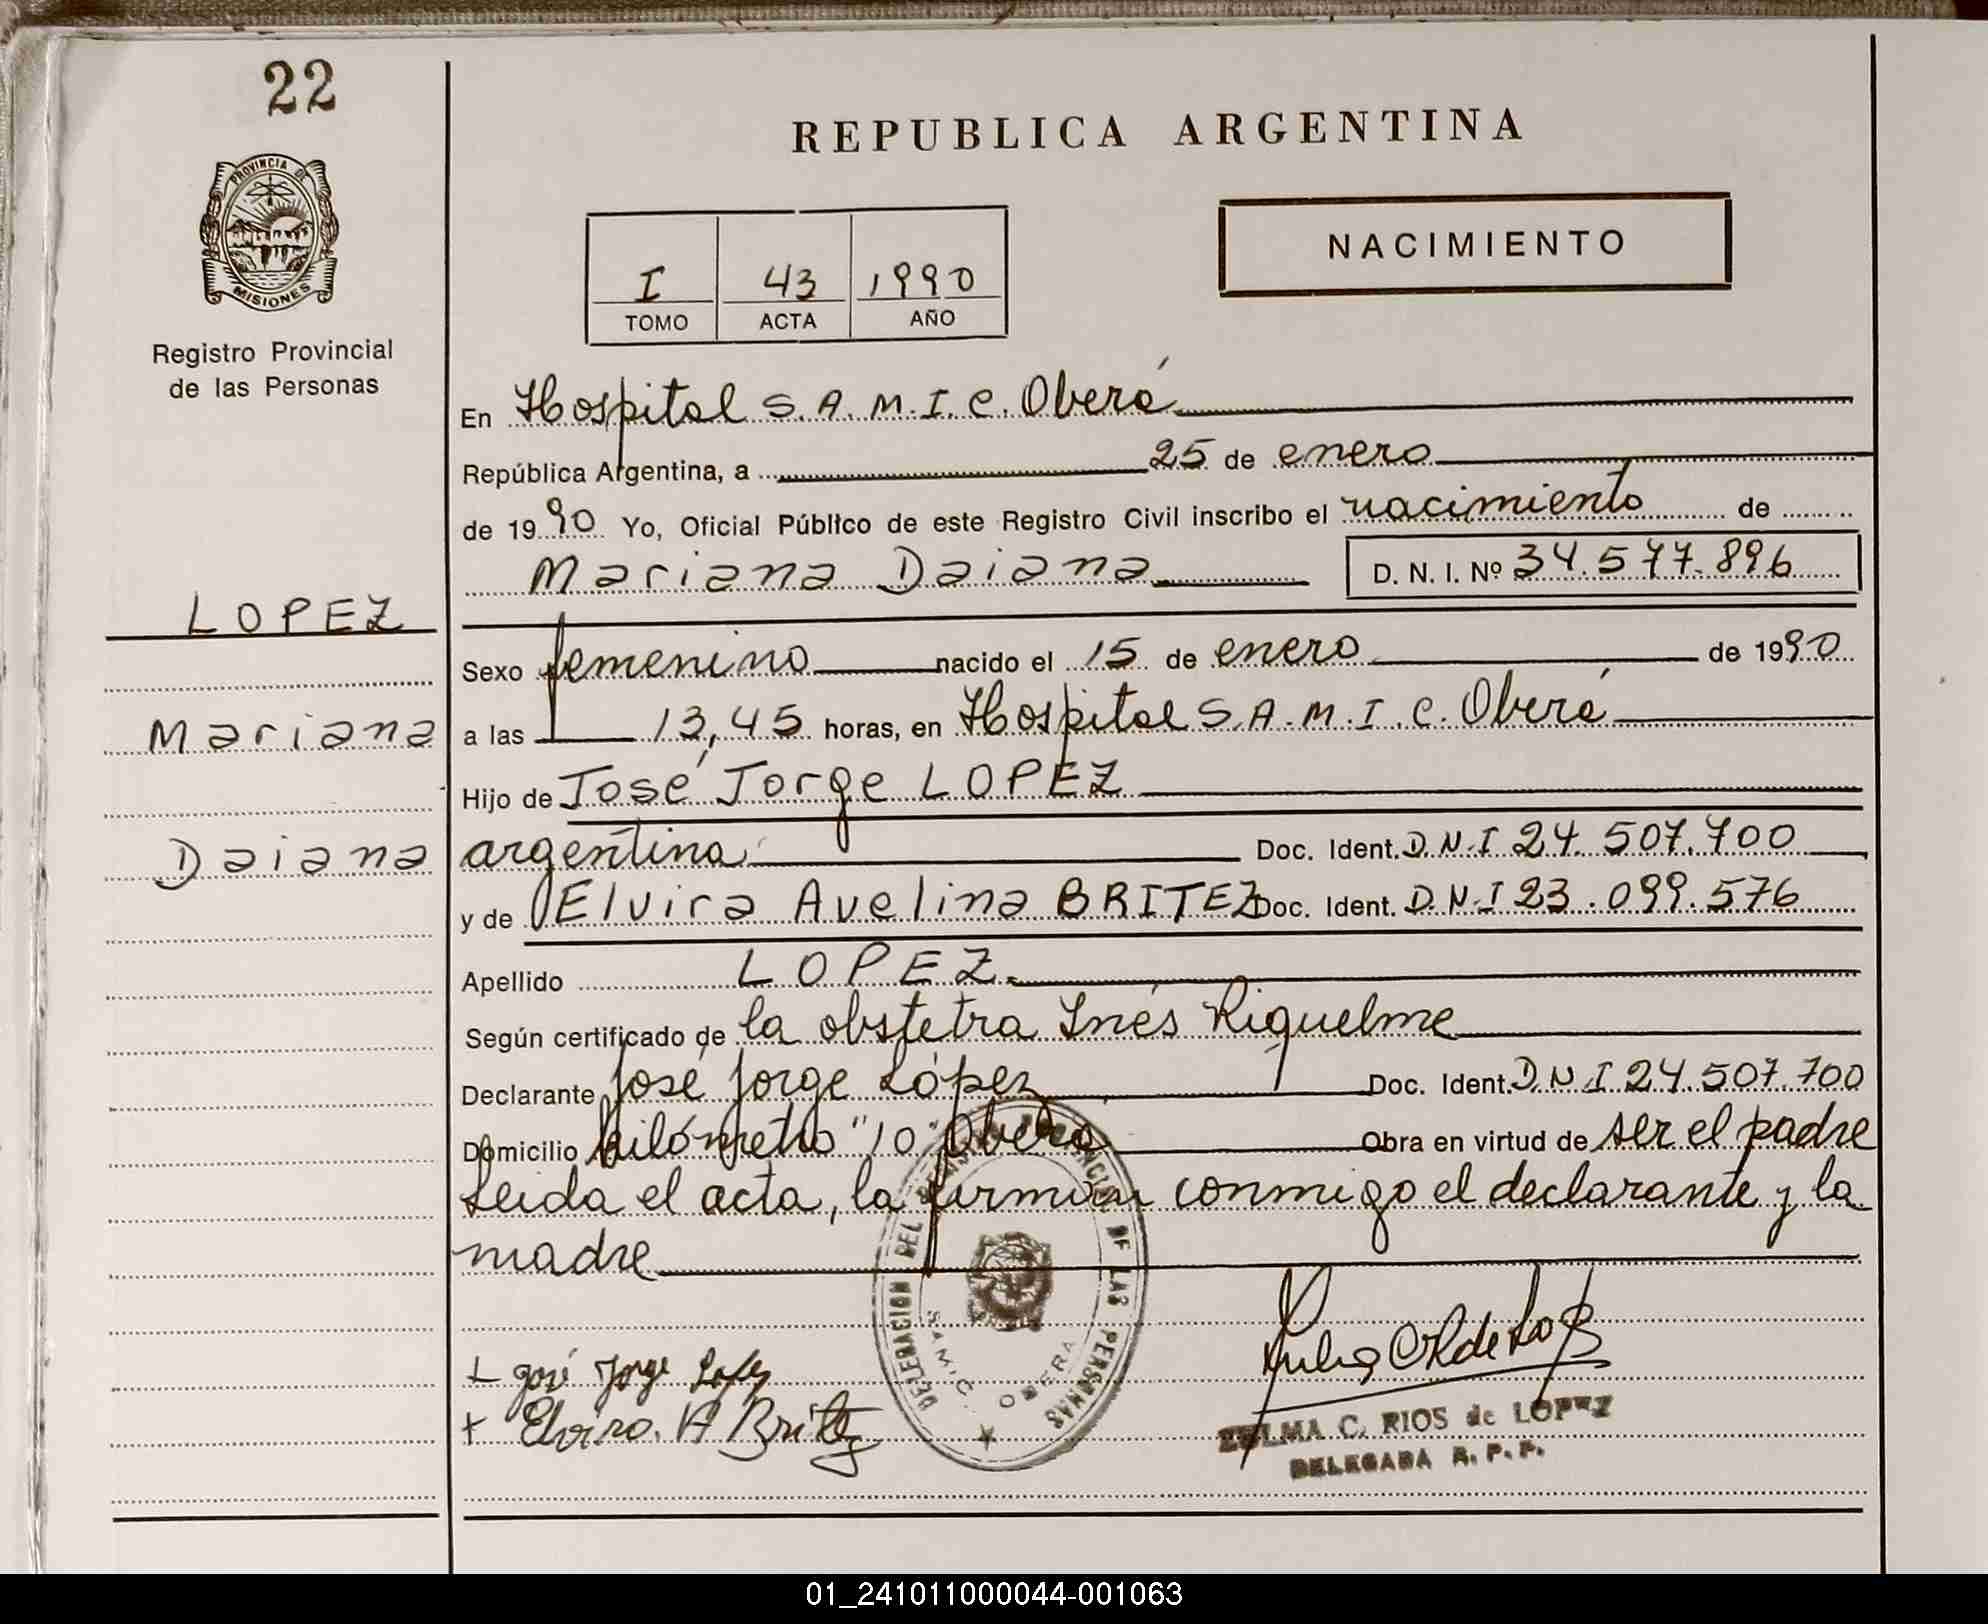 22
PROVINCIA DE
MISIONES
Registro Provincial
de las Personas
LOPEZ
Mariana
Daiana
REPUBLICA ARGENTINA
I 43 1990
TOMO ACTA AÑO
NACIMIENTO
En Hospital S.A.M.I.C. Oberá
República Argentina, a 25 de enero
de 1990 Yo, Oficial Público de este Registro Civil inscribo el nacimiento de
Mariana Daiana D. N. I. Nº 34.577.896
Sexo femenino nacido el 15 de enero de 1990
a las 13,45 horas, en Hospital S.A.M.I.C. Oberá
Hijo de José Jorge LOPEZ
argentina Doc. Ident. D.N.I 24.507.700
y de Elvira Avelina BRITEZ Doc. Ident. D.N.I 23.099.576
Apellido LOPEZ
Según certificado de la obstetra Inés Riquelme
Declarante José Jorge López Doc. Ident. D.N.I 24.507.700
Domicilio kilómetro "10" Oberá Obra en virtud de ser el padre
Leida el acta, la firman conmigo el declarante y la
madre
DE LAS PERSONAS
SAMIC. OBERA
+ José Jorge Lopez
+ Elvira. A Britez
ZULMA C. RIOS de LOPEZ
DELEGADA R. P. P.
01_241011000044-001063